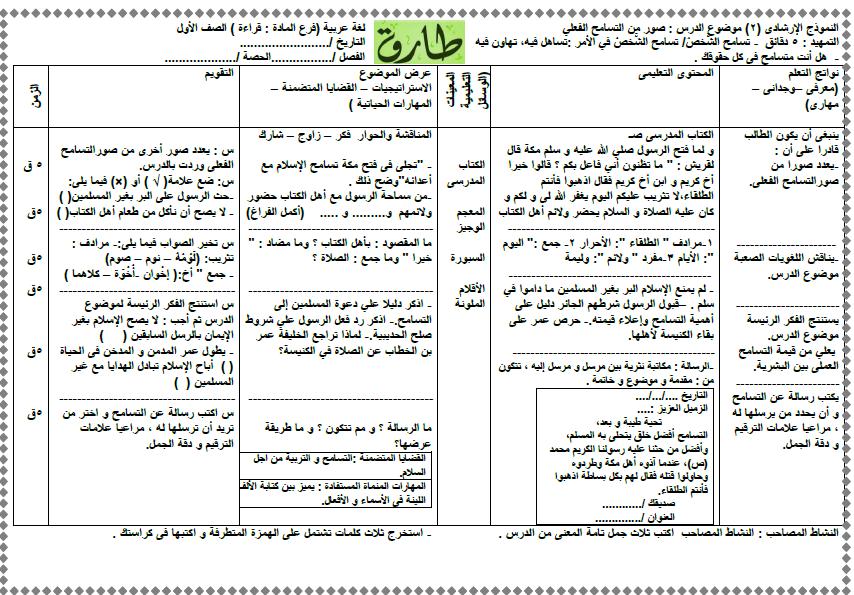 النموذج الإرشادى (٢) موضوع الدرس : صور من التسامح الفعلي
لغة عربية (فرع المادة : قراءة ) الصف الأول
التمهيد : ٥ دقائق - تسامح الشخصُ/ تسامح الشَّخصُ في الأمر :تساهل فيه، تهاون فيه
التاريخ /..........................
- هل أنت متسامح فى كل حقوقك .
الفصل /..................الحصة /.....................
طارق
نواتج التعلم
(معرفى –وجدانى –
مهارى)
المحتوى التعليمى
(الوسائل
التعليمية
المعينات
عرض الموضوع
الاستراتيجيات – القضايا المتضمنة –
المهارات الحياتية )
التقويم
الزمن
ينبغى أن يكون الطالب
قادرا على أن :
-يعدد صورا من
صورالتسامح الفعلى.
-يناقش اللغويات الصعبة
موضوع الدرس.
يستنتج الفكر الرئيسة
موضوع الدرس.
يعلي من قيمة التسامح
العملى بين البشرية.
يكتب رسالة عن التسامح
و أن يحدد من يرسلها له
، مراعيا علامات الترقيم
و دقة الجمل.
الكتاب المدرسى صـ
و لما فتح الرسول صلي الله عليه و سلم مكة قال
لقريش : " ما تظنون أني فاعل بكم ؟ قالوا خيرا
أخ كريم و ابن أخ كريم فقال اذهبوا فأنتم
الطلقاء،لا تثريب عليكم اليوم يغفر الله لى و لكم و
كان عليه الصلاة و السلام يحضر ولائم أهل الكتاب
١-مرادف " الطلقاء ": الأحرار ٢- جمع :" اليوم
": الأيام ٣-مفرد " ولائم ": وليمة
- لم يمنع الإسلام البر بغير المسلمين ما داموا في
سلم . –قبول الرسول شرطهم الجائر دليل على
أهمية التسامح وإعلاء قيمته.- حرص عمر على
بقاء الكنيسة لأهلها.
-الرسالة : مكاتبة نثرية بين مرسل و مرسل إليه ، تتكون
من : مقدمة و موضوع و خاتمة .
التاريخ ..../.../....
الزميل العزيز :....
تحية طيبة و بعد،
التسامح أفضل خلق يتحلى به المسلم،
وأفضل من حثنا عليه رسولنا الكريم محمد
(ص)، عندما آذوه أهل مكة وطردوه
وحاولوا قتله فقال لهم بكل بساطة اذهبوا
فأنتم الطلقاء.
صديقك /............
العنوان /.............
الكتاب
المدرسى
المعجم
الوجيز
السبورة
الأقلام
الملونة
المناقشة والحوار فكر – زاوج – شارك
- "تجلى فى فتح مكة تسامح الإسلام مع
أعدائه"وضح ذلك .
-من سماحة الرسول مع أهل الكتاب حضور
ولائمهم و......... و ..... (أكمل الفراغ)
ما المقصود : بأهل الكتاب ؟ وما مضاد : "
خيرا " وما جمع : الصلاة ؟
- اذكر دليلا علي دعوة المسلمين إلى
التسامح.- اذكر رد فعل الرسول علي شروط
صلح الحديبية.- لماذا تراجع الخليفة عمر
بن الخطاب عن الصلاة في الكنيسة؟
ما الرسالة ؟ و مم تتكون ؟ و ما طريقة
عرضها؟
القضايا المتضمنة :التسامح و التربية من اجل
السلام.
المهارات المنماة المستفادة : يميز بين كتابة الألف
اللينة في الأسماء و الأفعال.
س : يعدد صور أخرى من صورالتسامح
الفعلى وردت بالدرس.
س: ضع علامة( √ ) أو (x) فيما يلى:
-حث الرسول على البر بغير المسلمين( )
- لا يصح أن نأكل من طعام أهل الكتاب( )
س تخير الصواب فيما يلى:- مرادف :
تثريب: (لَوْمَة – نوم – صوم)
- جمع " أخ:( إخْوان -أُخُوّة – كلاهما )
س استنتج الفكر الرئيسة لموضوع
الدرس ثم أجب : لا يصح الإسلام بغير
الإيمان بالرسل السابقين ( )
- يطول عمر المدمن و المدخن فى الحياة
( ) أباح الإسلام تبادل الهدايا مع غير
المسلمين ( )
س اكتب رسالة عن التسامح و اختر من
تريد أن ترسلها له ، مراعيا علامات
الترقيم و دقة الجمل.
٥ ق
٥ق
٥ق
٥ق
٥ق
٥ق
النشاط المصاحب : النشاط المصاحب اكتب ثلاث جمل تامة المعنى من الدرس .
- استخرج ثلاث كلمات تشتمل على الهمزة المتطرفة و اكتبها فى كراستك .